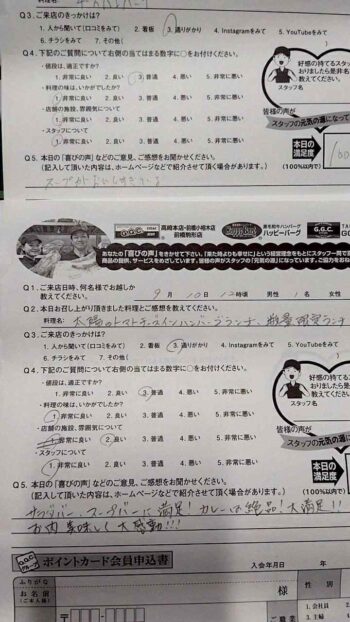 Q3. ご来店のきっかけは?
1. 人から聞いて(口コミをみて) 2. 看板 3. 通りがかり 4. Instagramをみて 5. YouTubeをみて
6. チラシをみて 7. その他(
Q4. 下記のご質問についてお側の当てはまる数字に○をお付けください。
・値段は、適正ですか?
1. 非常に良い 2. 良い 3. 普通 4. 悪い 5. 非常に悪い
・料理の味は、いかがでしたか?
1. 非常に良い 2. 良い 3. 普通 4. 悪い 5. 非常に悪い
・店舗の施設、雰囲気について
1. 非常に良い 2. 良い 3. 普通 4. 悪い 5. 非常に悪い
・スタッフについて
1. 非常に良い 2. 良い 3. 普通 4. 悪い 5. 非常に悪い
好感の持てるス
おりましたら是非名
教えてください。
スタッフ名
皆様の声が
スタッフの元気の源になって
Q5. 本日の「喜びの声」などのご意見、ご感想をお聞かせください。
(記入して頂いた内容は、ホームページなどで紹介させて頂く場合があります。)
本日の
満足度
(100%以内で)
100
G.G.C.
高崎本店・前橋小相木店
前橋駒形店
ハッピーバーグ
G.G.C.
あなたの「喜びの声」をきかせて下さい。「来た時よりも幸せに」という経営理念をもとにスタッフ一同で
商品の提供、サービスをめざしています。皆様の声がスタッフの「元気の源」になっています。ご協力をおね
Q1. ご来店日時、何名様でお越しか
教えてください。 9月 10日 12時頃 男性 1名 女性
Q2. 本日お召し上がり頂きました料理とご感想を教えてください。
料理名: 太陽のトマトチーズインハンバーグランチ、数量限定ランチ
Q3. ご来店のきっかけは?
1. 人から聞いて(口コミをみて) 2. 看板 3. 通りがかり 4. Instagramをみて 5. YouTubeをみて
6. チラシをみて 7. その他(
Q4. 下記のご質問についてお側の当てはまる数字に○をお付けください。
・値段は、適正ですか?
1. 非常に良い 2. 良い 3. 普通 4. 悪い 5. 非常に悪い
・料理の味は、いかがでしたか?
1. 非常に良い 2. 良い 3. 普通 4. 悪い 5. 非常に悪い
・店舗の施設、雰囲気について
1. 非常に良い 2. 良い 3. 普通 4. 悪い 5. 非常に悪い
・スタッフについて
1. 非常に良い 2. 良い 3. 普通 4. 悪い 5. 非常に悪い
好感の持てる
おりましたら是非
教えてください
スタッフ名
皆様の声が
スタッフの元気の源
Q5. 本日の「喜びの声」などのご意見、ご感想をお聞かせください。
(記入して頂いた内容は、ホームページなどで紹介させて頂く場合があります。)
本日の
満足度
(100%以内で)
サラダバー、スープバーに満足!カレーは絶品!大満足!!
お肉美味しくて大感動!!!
G.G.C.
グループ
ポイントカード会員申込書
入会年月日 年
ふりがな
お名前
(ご本人様)
様
性別
〒
ご職業
1. 会社員
3. 主婦